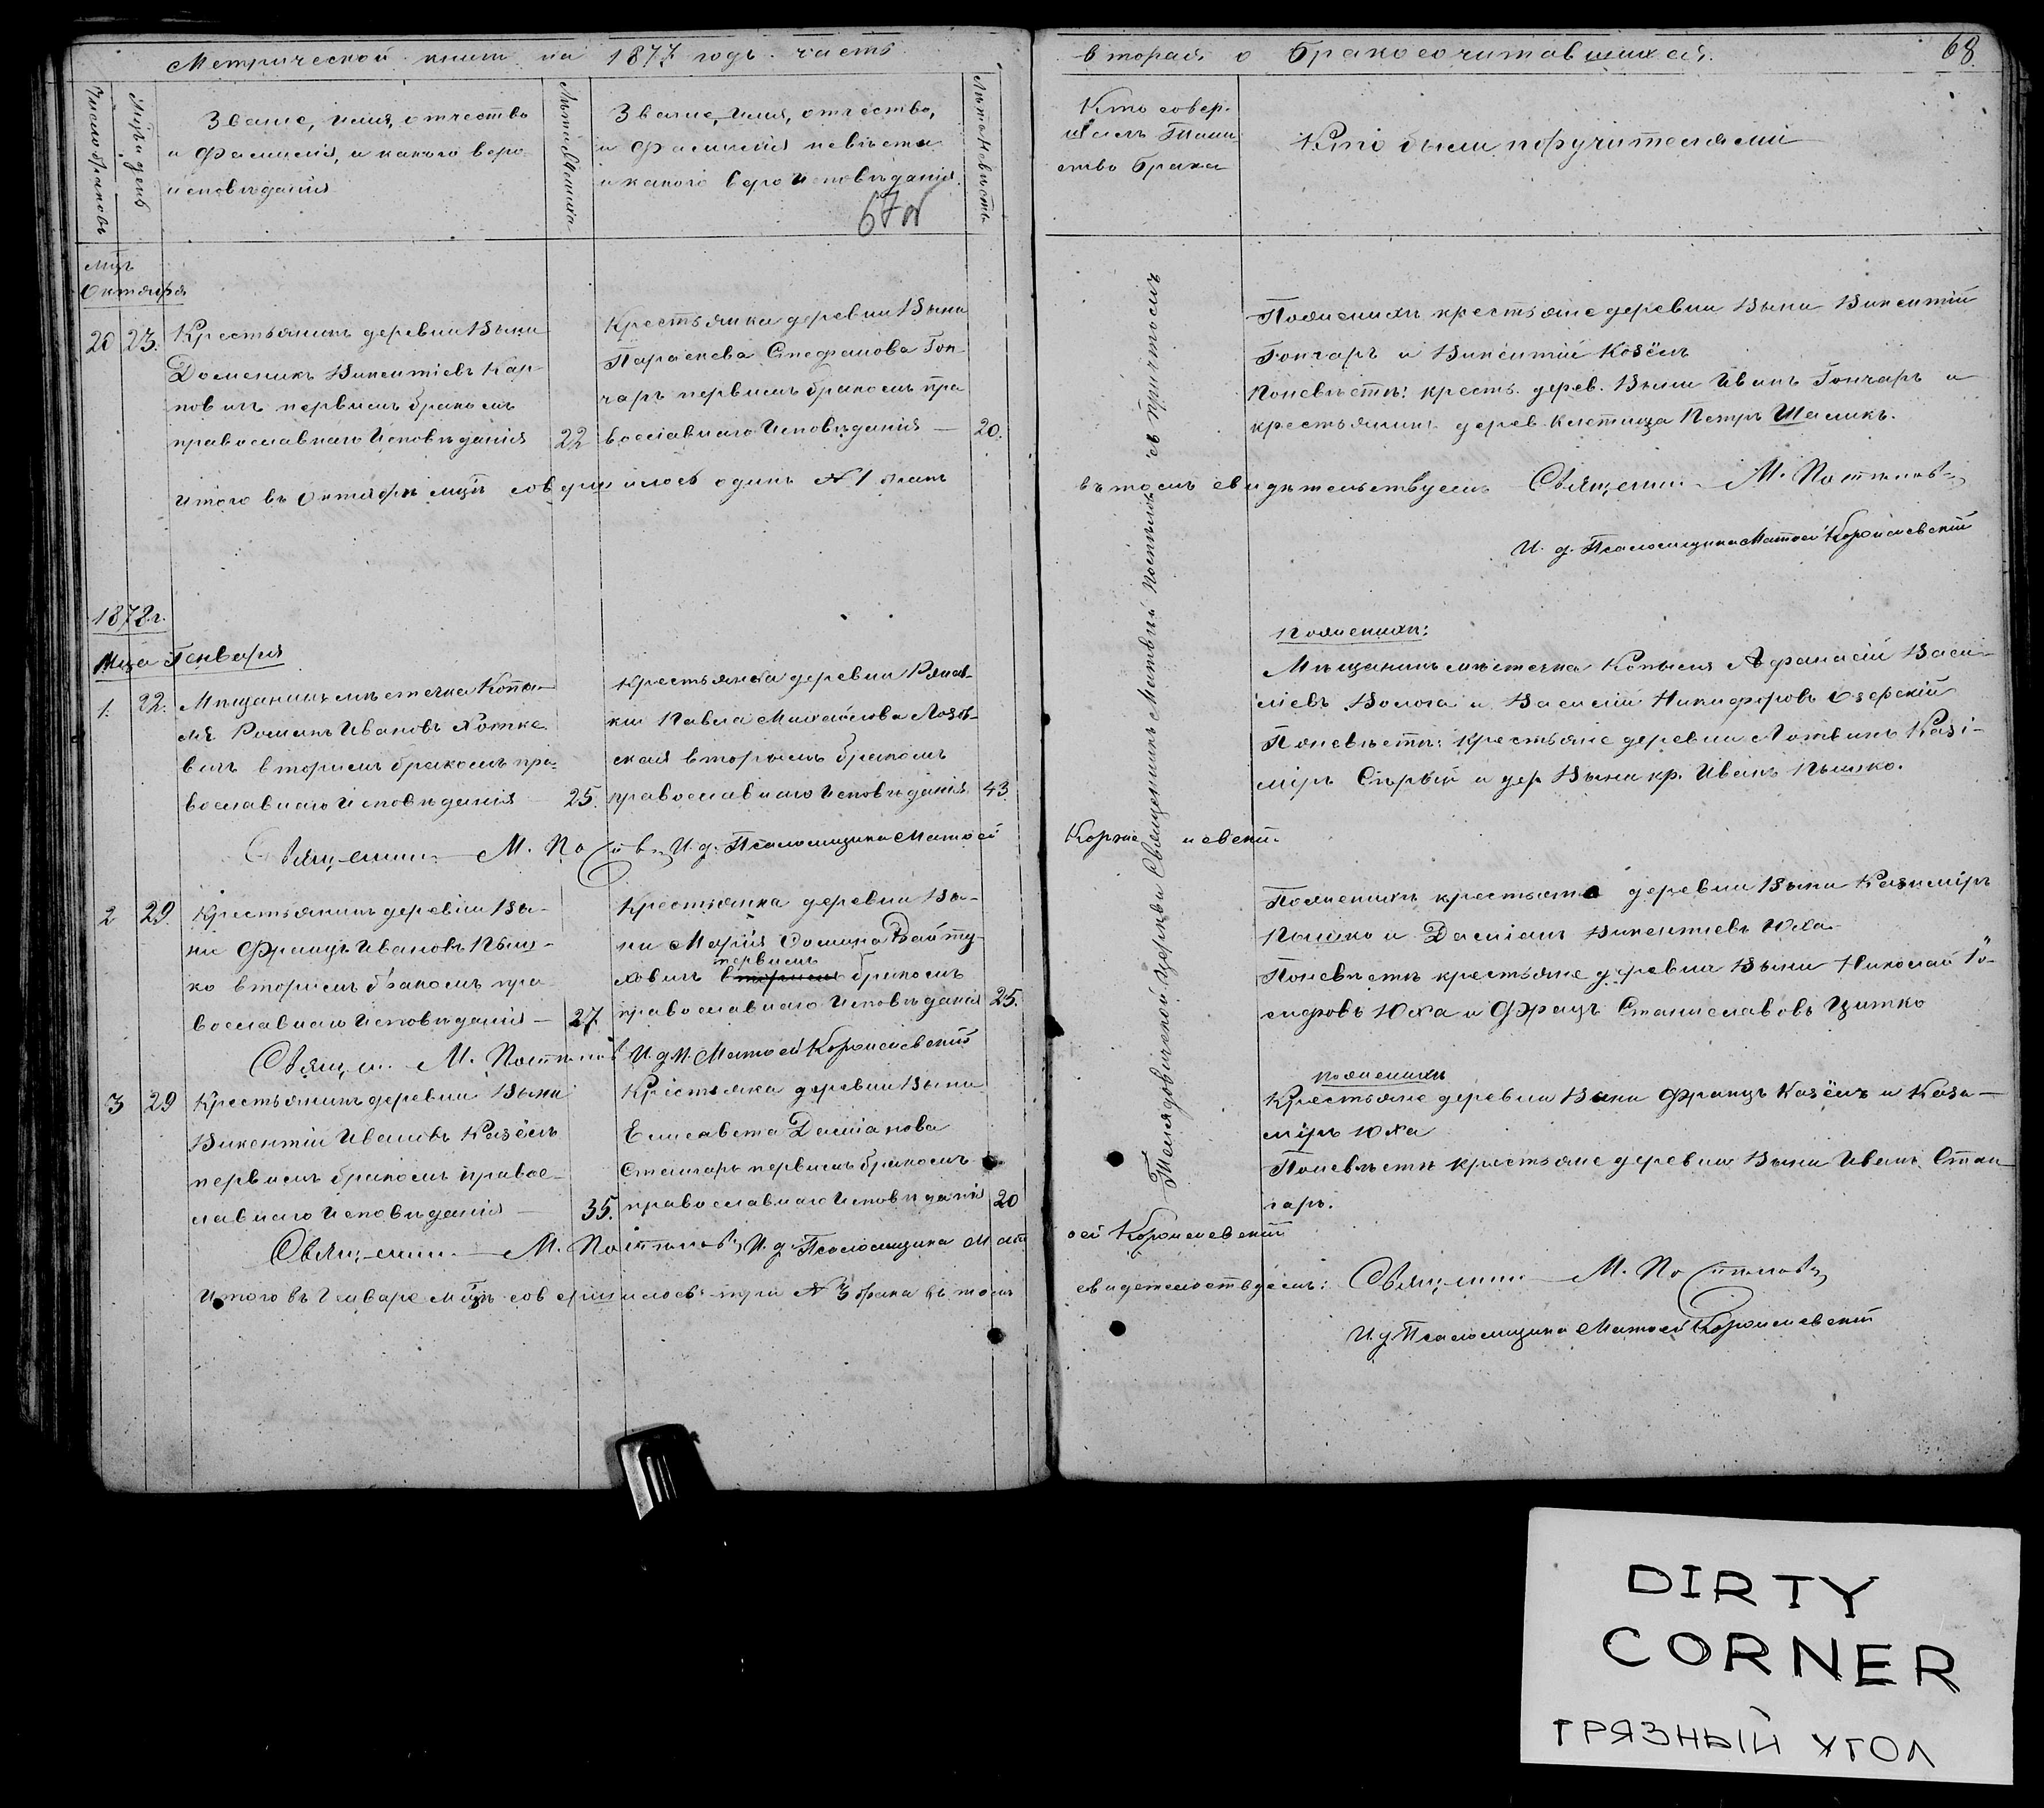 Метрической книги на 1877 годъ часть
вторая о бракосочитавшихся.
68
Число браковъ
Мѣсяцъ и день
Званіе, имя, отчество
и фамилія, и какого веро
исповѣданія
Лѣта жениха
Званіе, имя, отчество,
и фамилія невѣсты
и какого вероисповѣданія.
67об
Лѣта невѣсты
Кто совер-
шалъ Таин
ство брака
Кто были поручителями
мцъ
Октября
20 23. Крестьянинъ деревни Выни
Доменикъ Викентіевъ Кар-
повичъ первымъ бракомъ
православнаго Исповѣданія 22
Крестьянка деревни Выни
Параскева Стефанова Гон-
чаръ первымъ бракомъ пра
вославнаго Исповѣданія — 20.
Поженихѣ крестьяне деревни Выни Викентій
Гончаръ и Викентій Козёлъ
Поневѣстѣ: кресть. дерев. Выни Иванъ Гончаръ и
крестьянинъ дерев. Клетища Петръ Шаликъ.
Итого въ Октябрѣ мцѣ совершилось одинъ № 1 бракъ
въ томъ свидѣтельствуемъ Священни М.
И. д. Псаломщика Матѳей
1878г.
Мца Генваря
1. 22. Мѣщанинъ мѣстечка Копы-
ля Романъ Ивановъ Хотке
вичъ вторымъ бракомъ пра-
вославнаго Исповѣданія 25.
Крестьянка деревни
Павла Михайлова
ская вторымъ бракомъ
православнаго Исповѣданія 43.
Поженихѣ:
Мѣщанинъ мѣстечка Копыля Афанасій Васи-
ліевъ Волога и Василій Никифоровъ Озерскій
Поневѣстѣ: крестьяне деревни Лотвинъ Казі-
міръ Сѣрый и дер Выни кр. Иванъ Пышко.
Священни М. И. д. Псаломщика Матѳей
2 29. Крестьянинъ деревни Вы-
ни Францъ Ивановъ Пыш-
ко вторымъ бракомъ пра
вославнаго Исповѣданія — 27
Крестьянка деревни Вы-
ни Марія Осипова Войту-
первымъ
ховичъ вторымъ бракомъ
православнаго Исповѣданія 25.
Поженихѣ крестьяне деревни Выни Казиміръ
Пышко и Даміанъ Викентіевъ Юха
Поневѣстѣ крестьяне деревни Выни Николай Іо-
сифовъ Юха и Францъ Станиславовъ Цитко
Священ. М. И. д. П. Матѳей
3 29 Крестьянинъ деревни Выни
Викентій Ивановъ Козёлъ
первымъ бракомъ правос-
лавнаго Исповѣданія — 35.
Крестьянка деревни Выни
Елисавета Даміанова
первымъ бракомъ
православнаго Исповѣданія 20
поженихѣ
Крестьяне деревни Выни Францъ Козёлъ и Кази-
міръ Юха
Поневѣстѣ крестьяне деревни Выни Иванъ
Священни М. И. д. Псаломщика Мат
ѳей
Итого въ Генваре мцѣ совершилось три № 3 брака въ томъ
свидетельствуемъ: Священни М.
И. д. Псаломщика Матѳей
церкви Священникъ Матвѣй съ причтомъ
DIRTY
CORNER
ГРЯЗНЫЙ УГОЛ